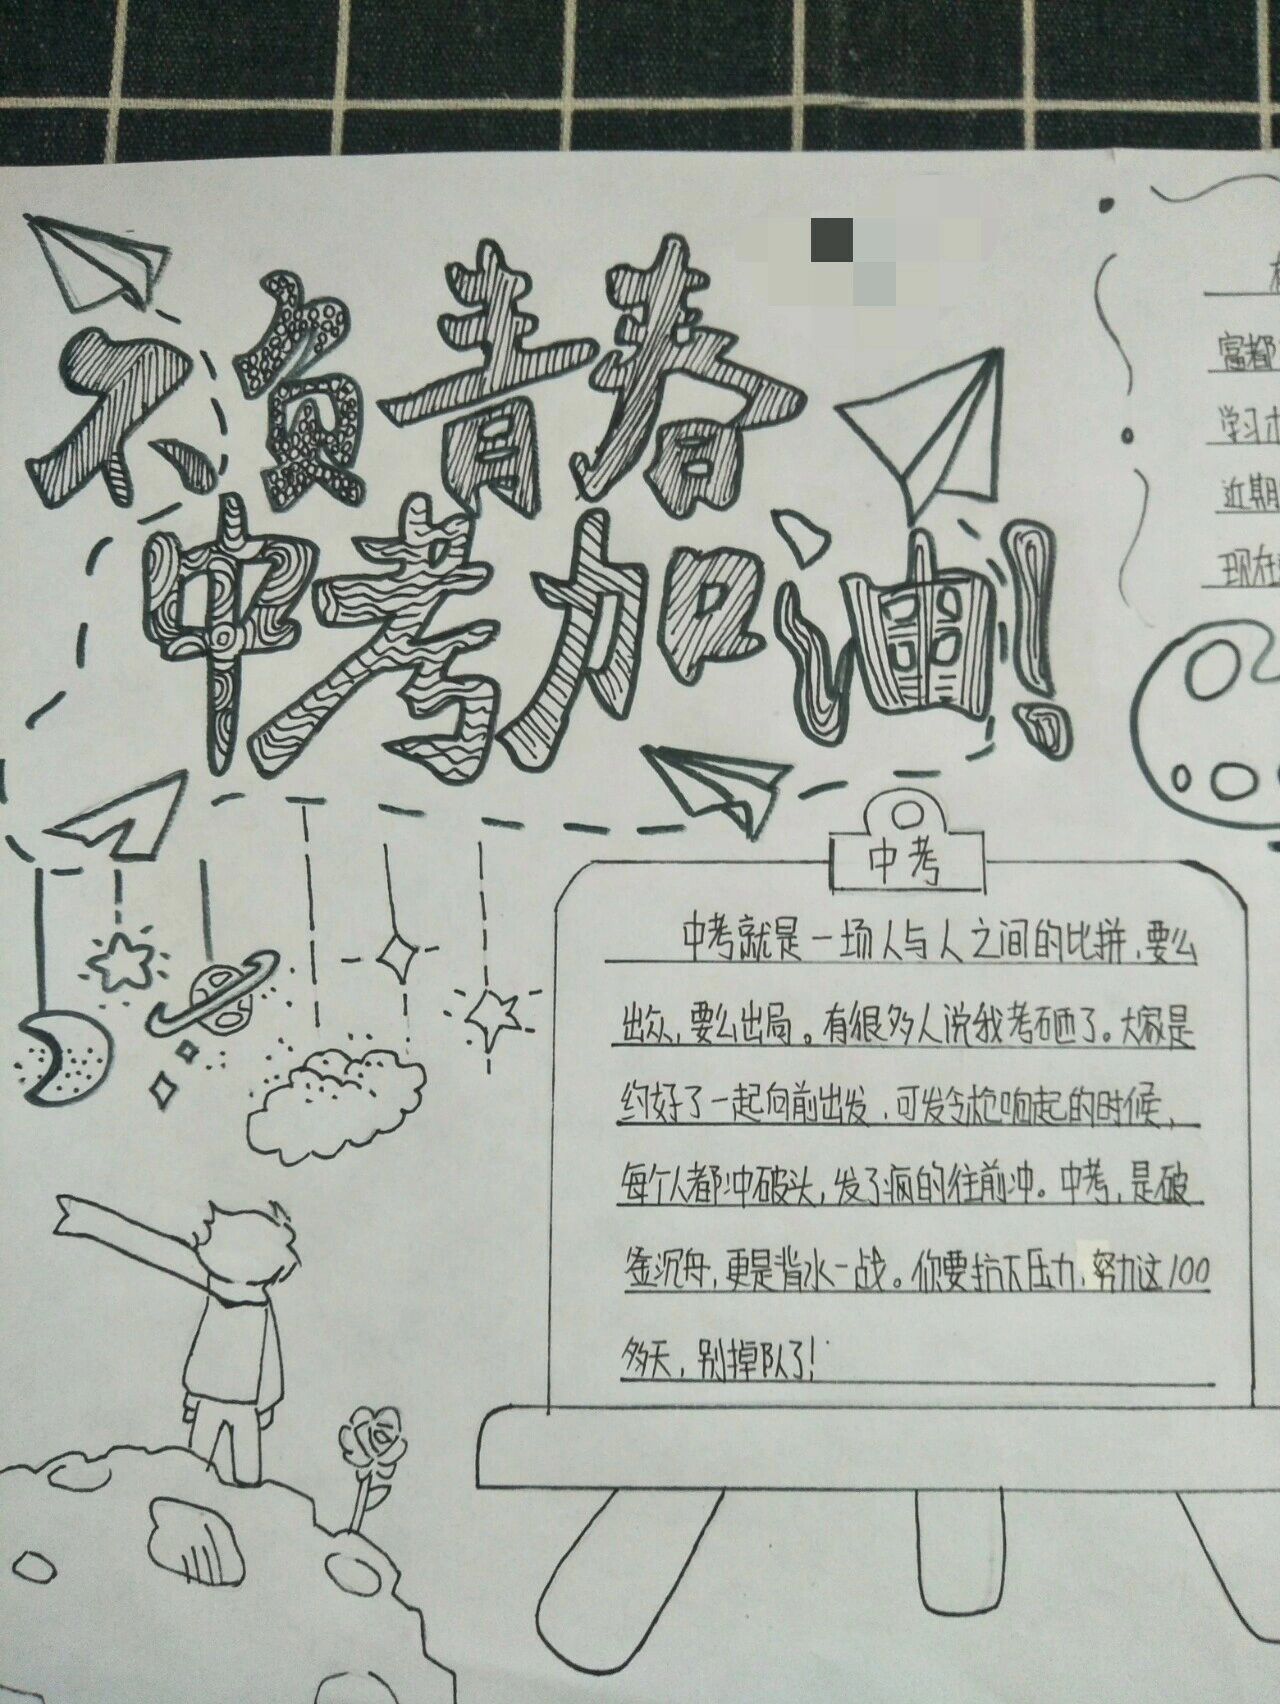 不负青春
中考加油!
中考
中考就是一场人与人之间的比拼,要么
出众,要么出局。有很多人说我考砸了。大家是
约好了一起向前出发,可发令枪响起的时候,
每个人都冲破头,发了疯的往前冲。中考,是破
釜沉舟,更是背水一战。你要抗下压力,努力这100
多天,别掉队了!
富都
学习
近期
现在